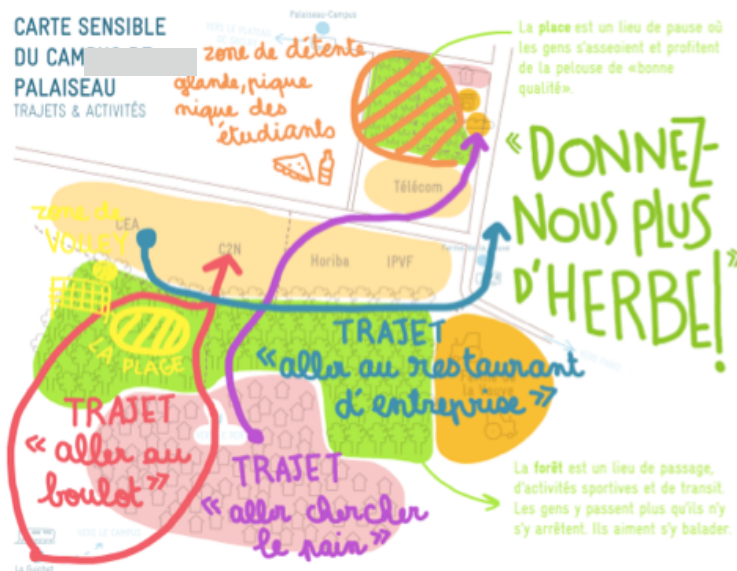 CARTE SENSIBLE
DU CAMPUS DE
PALAISEAU
TRAJETS & ACTIVITÉS
Palaiseau-Campus
VERS LE PLATEAU
zone de détente
glande, pique
nique des
étudiants
La place est un lieu de pause où
les gens s'asseoient et profitent
de la pelouse de «bonne
qualité».
« DONNEZ-
NOUS PLUS
D'HERBE! »
Télécom
zone de
VOLLEY
CEA
C2N
Horiba
IPVF
LA PLAGE
TRAJET
« aller au restaurant
d'entreprise »
TRAJET
« aller au
boulot »
TRAJET
« aller chercher
le pain »
La forêt est un lieu de passage,
d'activités sportives et de transit.
Les gens y passent plus qu'ils n'y
s'y arrêtent. Ils aiment s'y balader.
VERS LE CAMPUS
Le Guichet